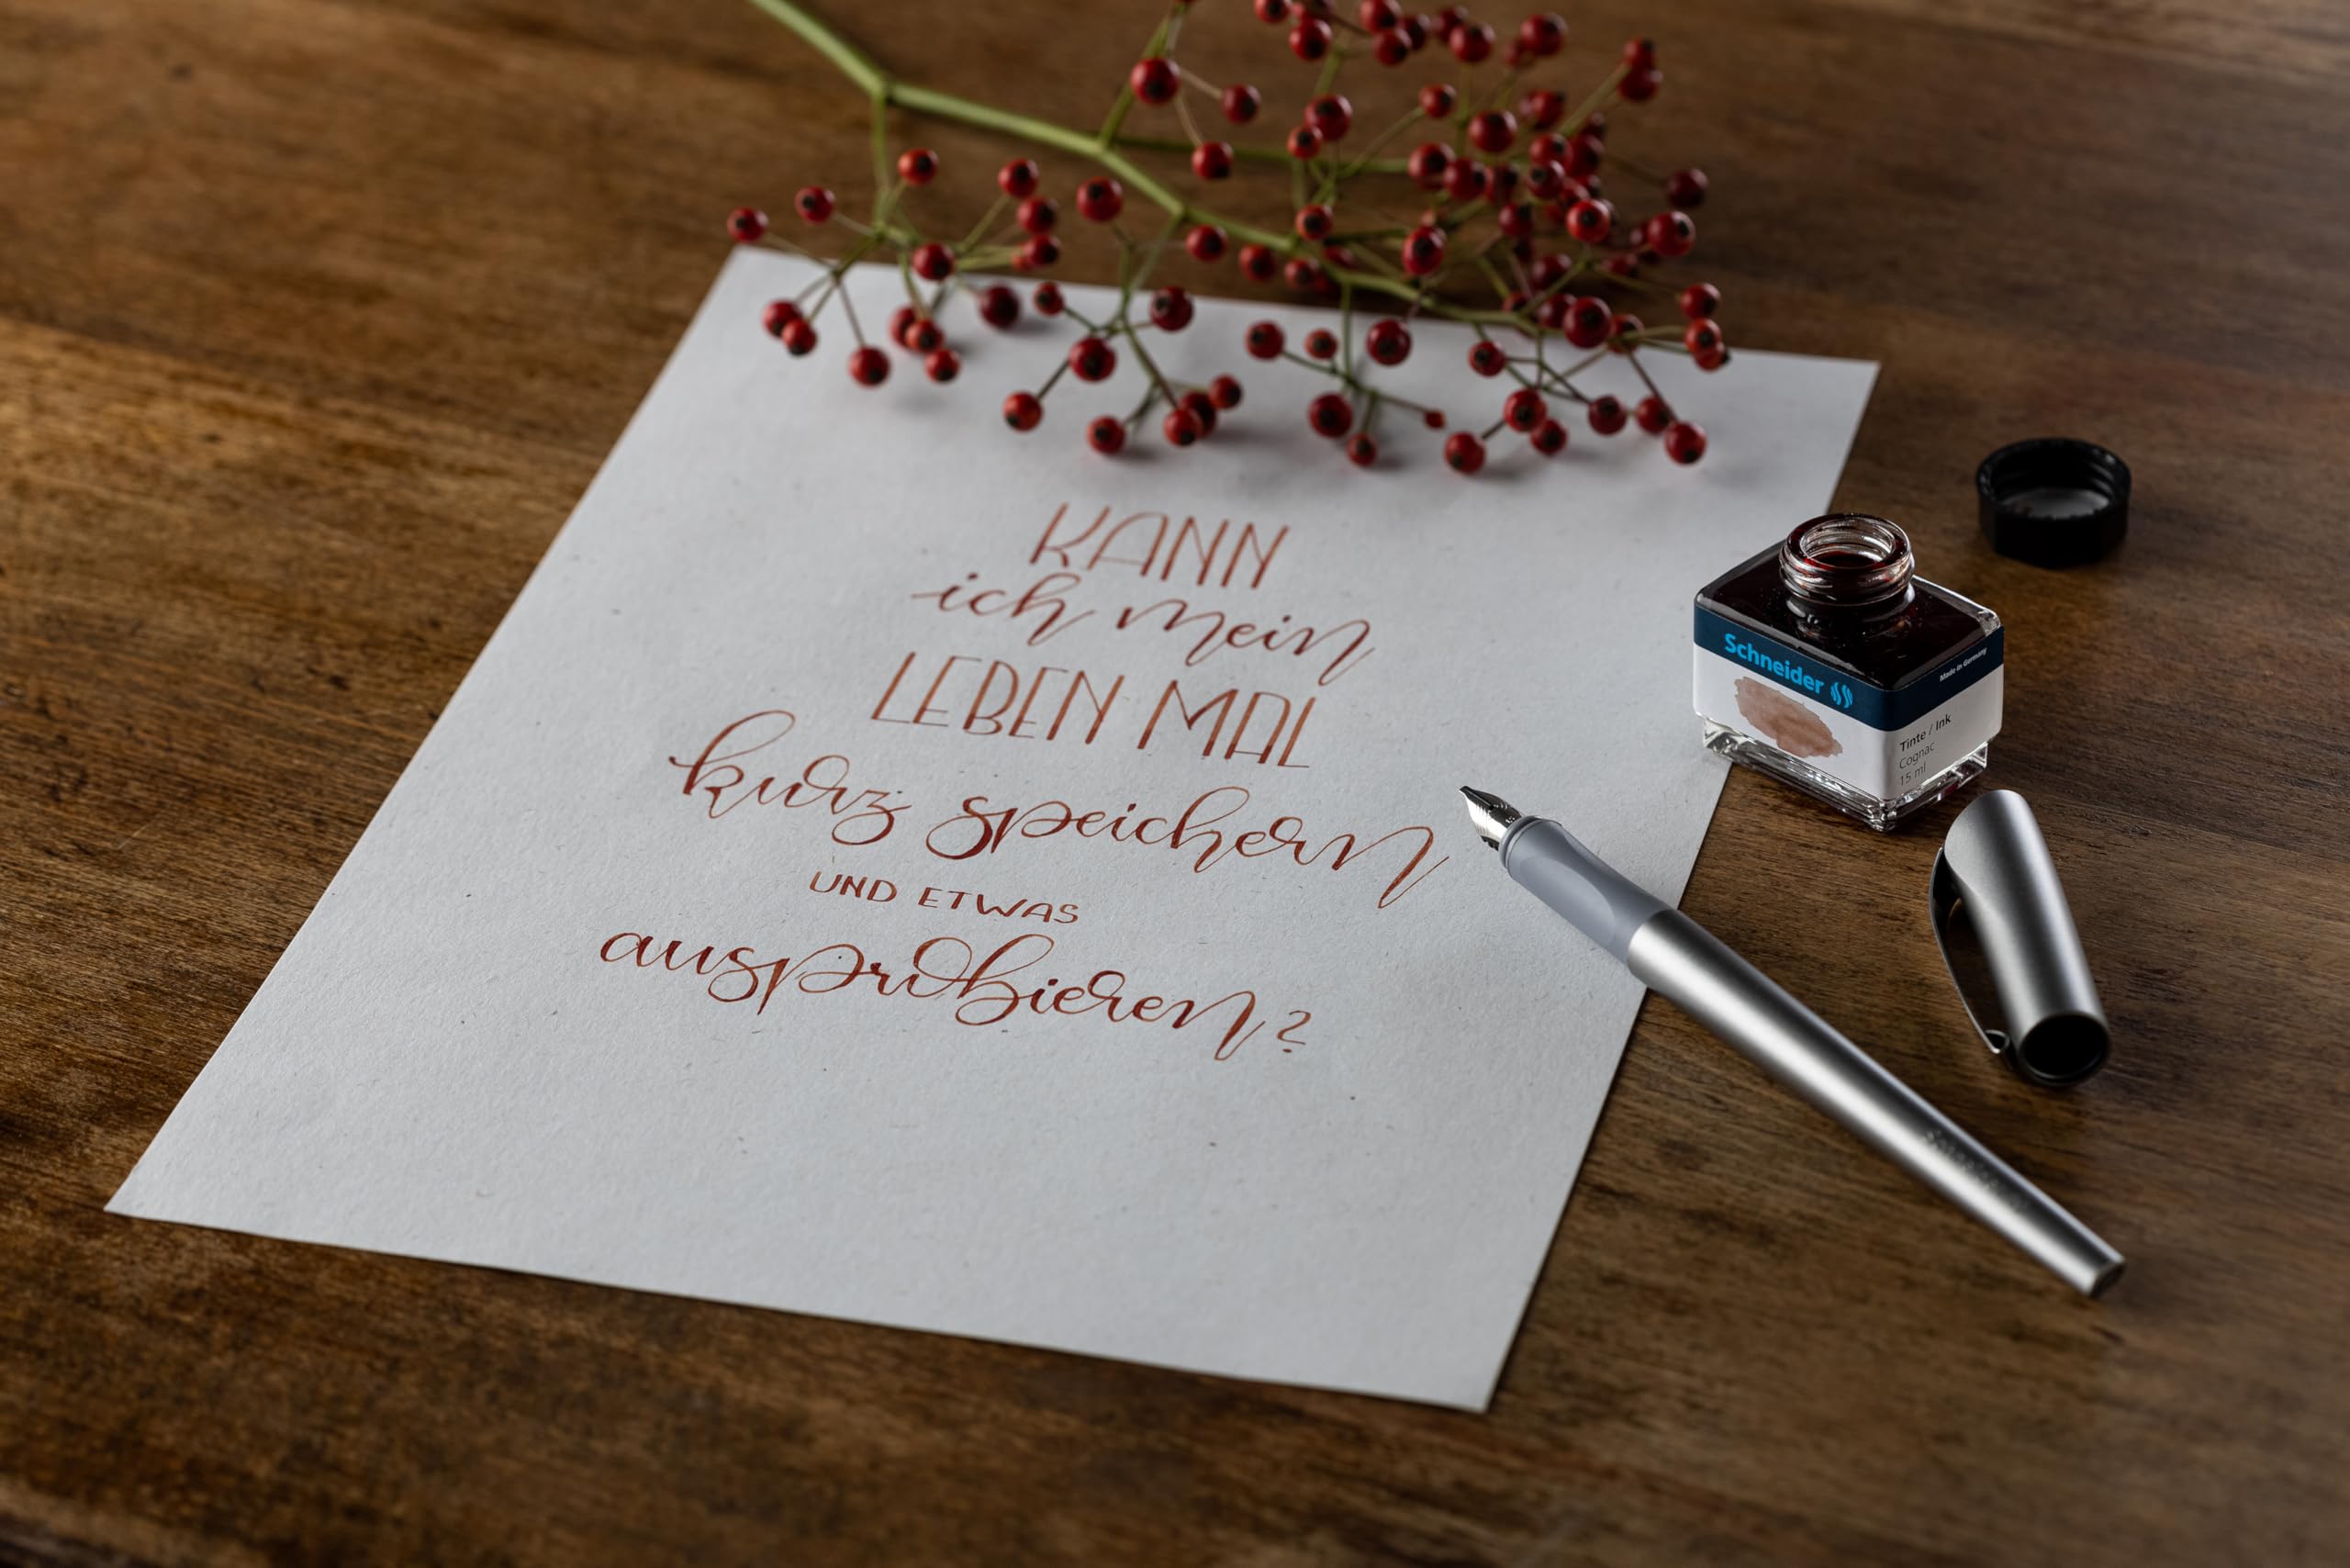 KANN
ich mein
LEBEN MAL
kurz speichern
UND ETWAS
ausprobieren?
Schneider
Made in Germany
Tinte / Ink
Cognac
15 ml